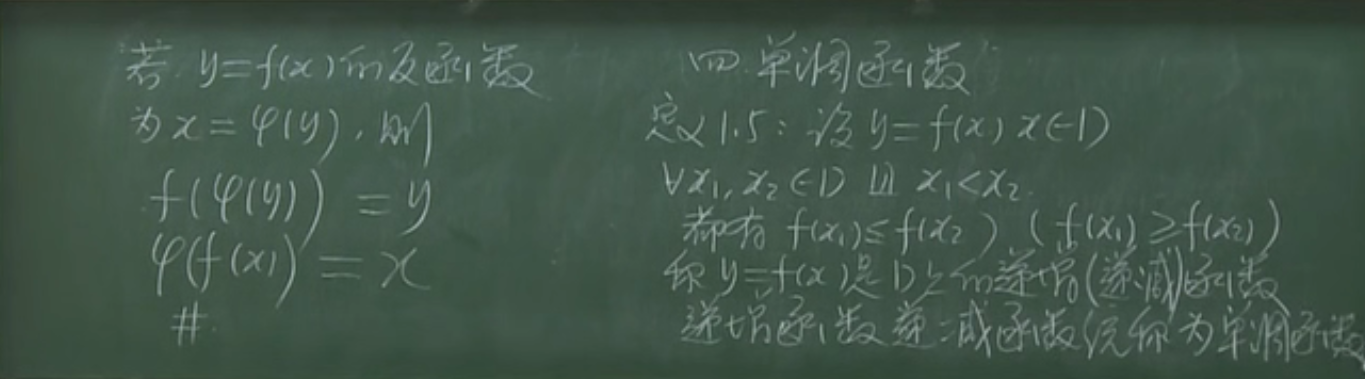 若 y=f(x)的反函数
为 x=φ(y),则
f(φ(y))=y
φ(f(x))=x
#
四.单调函数
定义1.5:设 y=f(x) x∈D
∀x₁,x₂∈D 且 x₁<x₂
都有 f(x₁)≤f(x₂) (f(x₁)≥f(x₂))
称 y=f(x)是D上的递增(递减)函数
递增函数递减函数统称为单调函数